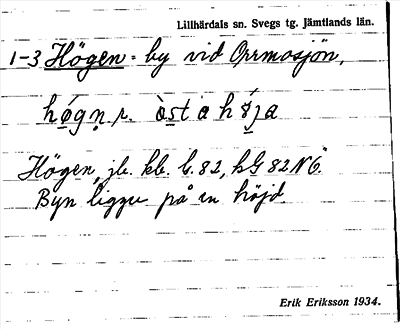 Lillhärdals sn. Svegs tg. Jämtlands län.
1-3 Högen = by vid Orrmosjön,
hǿgn̥ r. òsta hǿja
Högen, jb. kb. b.82, hG 82 N 6.
Byn ligger på en höjd.
Erik Eriksson 1934.